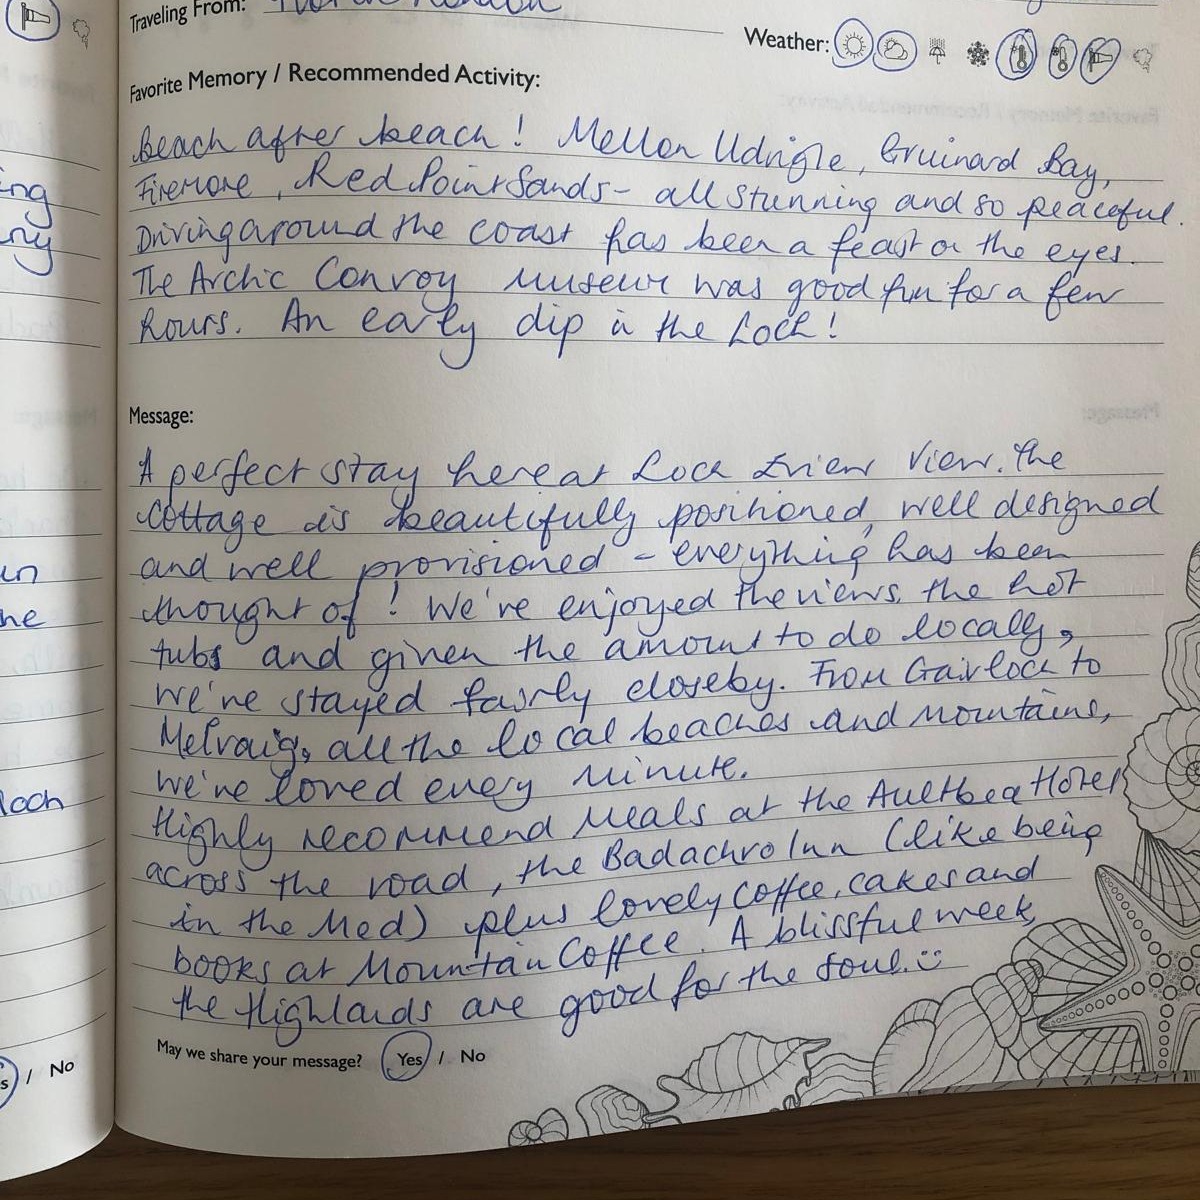 Traveling From:
Weather:
Favorite Memory / Recommended Activity:
Beach after beach! Mellon Udrigle, Gruinard Bay,
Firemore, Red Point Sands - all stunning and so peaceful.
Driving around the coast has been a feast on the eyes.
The Arctic Convoy museum was good fun for a few
hours. An early dip in the Loch!
Message:
A perfect stay here at Loch Ewe View. The
cottage is beautifully positioned, well designed
and well provisioned - everything has been
thought of! We've enjoyed the views, the hot
tubs and given the amount to do locally,
we've stayed fairly closeby. From Gairloch to
Melvaig, all the local beaches and mountains,
we've loved every minute.
Highly recommend meals at the Aultbea Hotel
across the road, the Badachro Inn (like being
in the Med) plus lovely coffee, cakes and
books at Mountain Coffee. A blissful week,
the Highlands are good for the soul.
May we share your message? Yes / No
ing
ny
un
he
loch
s / No